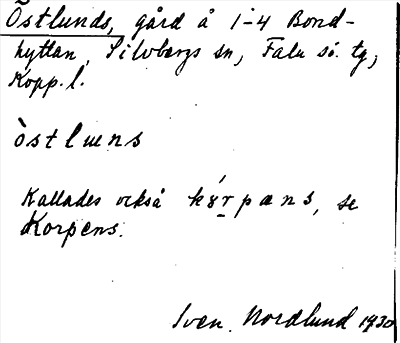 Östlunds, gård å 1-4 Bond-
hyttan, Silvbergs sn, Falu sö. tg,
Kopp. l.
òstluens
Kallades också kórpæns, se
Korpens.
Sven Nordlund 1930